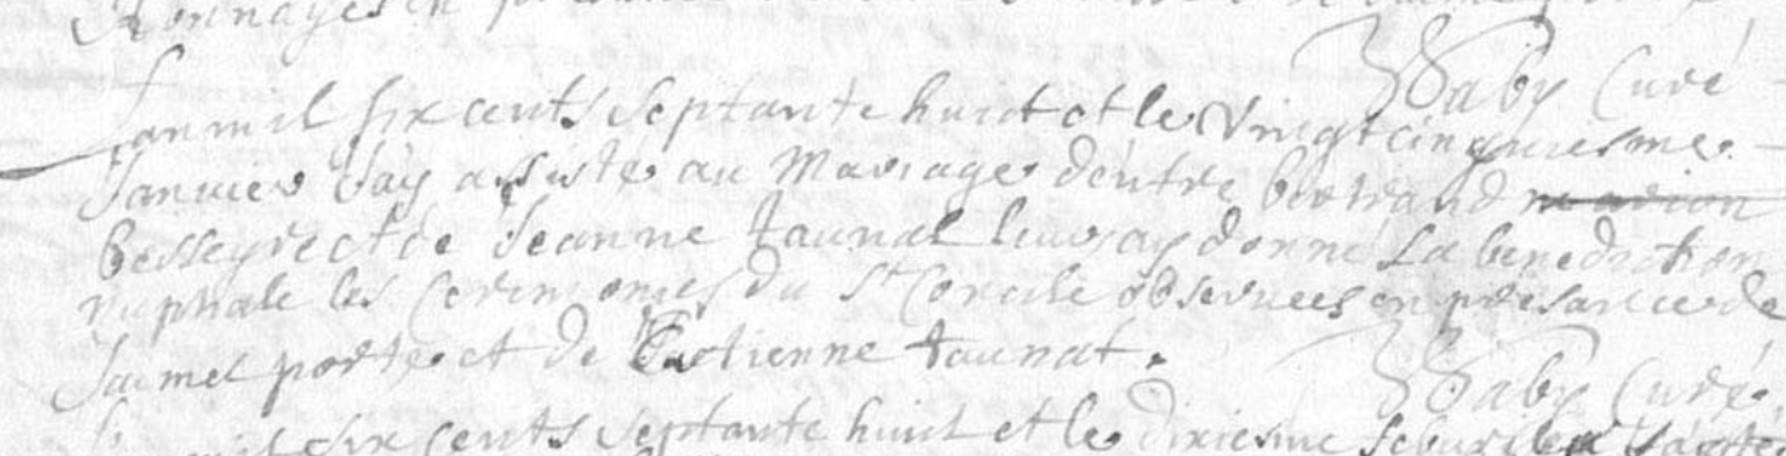 Baby Curé
Lan mil six cents septante huict et le vingtcinquiesme
Janvier Jay assisté au Mariage dentre bertrand marion
besseyre et de Jeanne taunat leur ay donné La benediction
nuptiale les Ceremonies du St Concile observees en presance de
Jamet porte et de Estienne taunat.
Baby Curé
mil six cents septante huict et le dixiesme